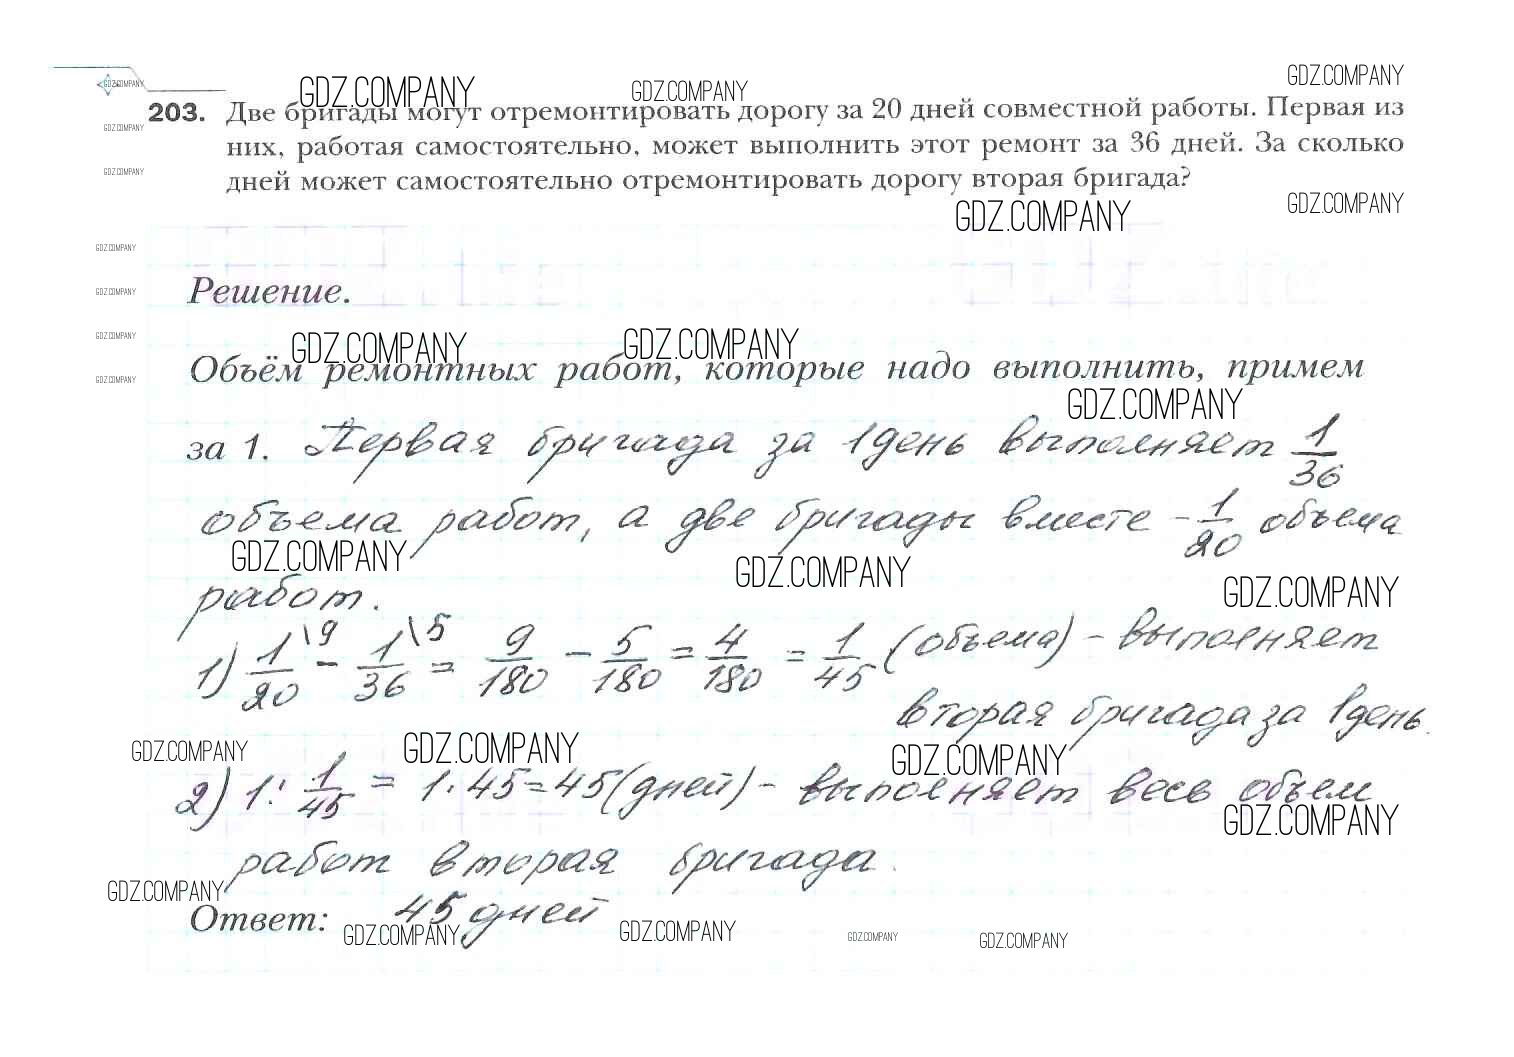 GDZ.COMPANY
GDZ.COMPANY GDZ.COMPANY GDZ.COMPANY
203. Две бригады могут отремонтировать дорогу за 20 дней совместной работы. Первая из
GDZ.COMPANY
них, работая самостоятельно, может выполнить этот ремонт за 36 дней. За сколько
GDZ.COMPANY
дней может самостоятельно отремонтировать дорогу вторая бригада?
GDZ.COMPANY GDZ.COMPANY
GDZ.COMPANY
Решение.
GDZ.COMPANY
GDZ.COMPANY
GDZ.COMPANY GDZ.COMPANY
Объём ремонтных работ, которые надо выполнить, примем
GDZ.COMPANY
GDZ.COMPANY
за 1. Первая бригада за 1 день выполняет 1/36
объема работ, а две бригады вместе - 1/20 объема
GDZ.COMPANY GDZ.COMPANY GDZ.COMPANY
работ.
1) 1/20 \9 - 1/36 \5 = 9/180 - 5/180 = 4/180 = 1/45 (объема) - выполняет
вторая бригада за 1 день.
GDZ.COMPANY GDZ.COMPANY GDZ.COMPANY
2) 1 : 1/45 = 1 · 45 = 45 (дней) - выполняет весь объем
GDZ.COMPANY
работ вторая бригада.
GDZ.COMPANY
Ответ: 45 дней
GDZ.COMPANY GDZ.COMPANY GDZ.COMPANY GDZ.COMPANY